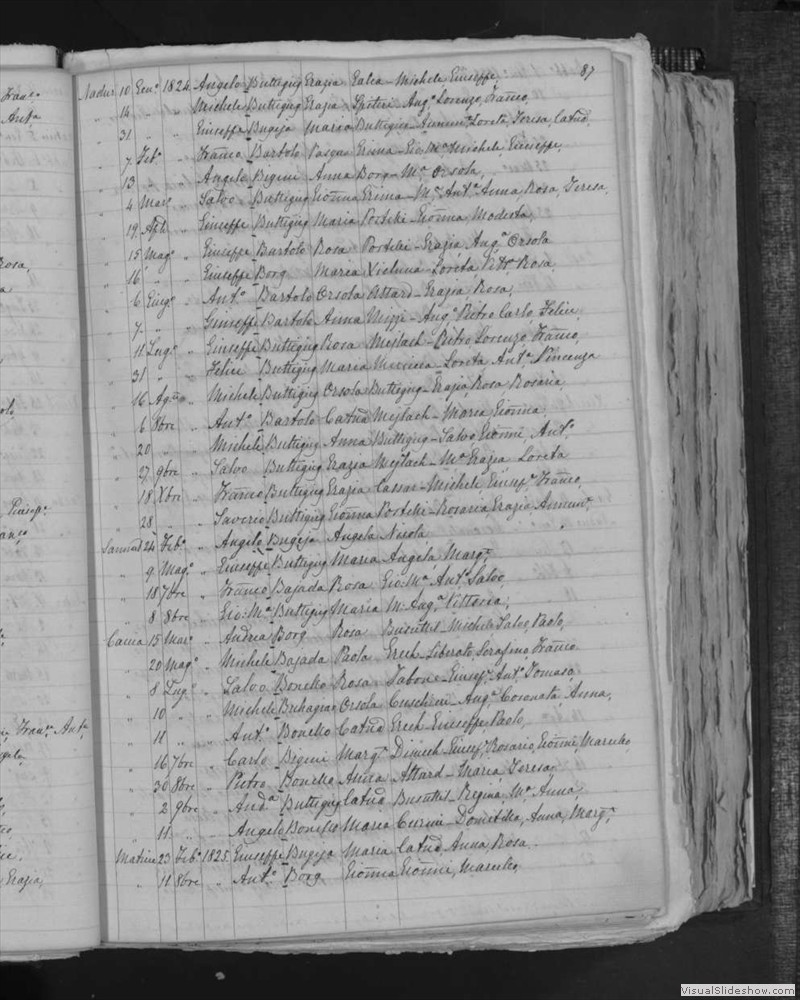 Franco
Ant.a
Rosa,
a
olo
Giusep.e
anco
Fran.o Ant.a
Grazia,
87
Nadur 10 Gen.o 1824 Angelo Buttigieg Grazia Galea - Michele Giuseppe,
" 14 " " Michele Buttigieg Grazia Spiteri Aug.o Lorenzo, Franco,
31 " " Giuseppe Bugeja Maria Buttigieg - Annun.a Loreta Teresa, Catna,
" 7 Feb.o " Franco Bartolo Pasqua Grima - Gio: M.a Michele, Giuseppe,
" 13 " Angelo Bigeni Anna Borg - M.a Orsola,
" 4 Marzo " Salvo Buttigieg Gionna Grima - M.a Ant.a Anna, Rosa, Teresa,
" 19 Aple " Giuseppe Buttigieg Maria Portelli - Gionna, Modesta,
" 15 Mag.o " Giuseppe Bartolo Rosa Portelli - Grazia, Aug.a Orsola
" 16 " " Giuseppe Borg Maria Xicluna - Loreta Vitt.a Rosa,
" 6 Giug.o " Ant.o Bartolo Orsola Attard - Grazia Rosa,
" 7 " " Giuseppe Bartolo Anna Mizzi - Aug.o Pietro Carlo Felice
" 11 Lug.o " Giuseppe Buttigieg Rosa Mejlach - Pietro Lorenzo, Franco,
" 31 " " Felice Buttigieg Maria - Loreta Ant.a Vincenza
" 16 Ag.to " Michele Buttigieg Orsola Buttigieg - Grazia, Rosa Rosaria,
" 6 8bre " Ant.o Bartolo Catna Mejlach - Maria Gionna,
" 20 " " Michele Buttigieg Anna Buttigieg - Salvo Gionni, Ant.o
" 27 9bre " Salvo Buttigieg Grazia Mejlach - M.a Grazia Loreta
" 18 Xbre " Franco Buttigieg Grazia Cassar - Michele Giusep.e Franco,
" 28 " Saverio Buttigieg Gionna Portelli - Rosaria Grazia Annun.a
Sannat 24 Feb.o " Angelo Bugeja Angela Nicola
" 9 Mag.o " Giuseppe Buttigieg Maria Angela, Marg.a
" 18 7bre " Franco Bajada Rosa Gio: M.a Ant.o Salvo,
" 8 8bre " Gio: M.a Buttigieg Maria M: Aug.a Vittoria,
Caccia 15 Mar.o " Andrea Borg Rosa Busuttil - Michele Salvo, Paolo,
" 20 Mag.o " Michele Bajada Paola Grech - Liberato Serafino Franco
" 8 Lug.o " Salvo Bonello Rosa Tabone - Giusep.e Ant.o Tomaso,
" 10 " " Michele Buhagiar Orsola Cuschieri - Aug.a Coronata, Anna,
" 11 " " Ant.o Bonello Catna Grech - Giuseppe, Paolo,
" 16 7bre " Carlo Bigeni Marg.a Dimech - Giusep.e Rosario, Gionni, Marcello,
" 30 8bre " Pietro Bonello Anna Attard - Maria, Teresa,
" 2 9bre " And.a Buttigieg Catna Busuttil - Regina, M.a Anna,
" 11 " " Angelo Bonello Maria Curmi - Domitilla, Anna, Marg.a
Matrice 23 Feb.o 1825. Giuseppe Bugeja Maria Catna Anna, Rosa
" 11 8bre " Ant.o Borg Gionna Gionni, Marcello,
VisualSlideshow.com